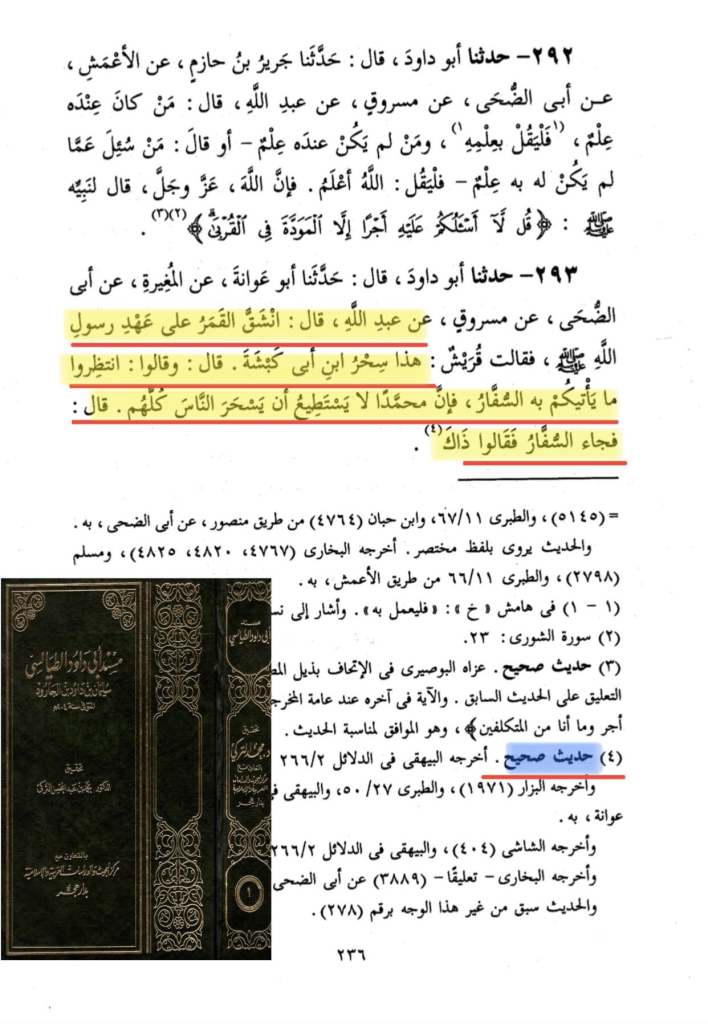 ٢٩٢- حدثنا أبو داودَ ، قال : حَدَّثَنا جَريرُ بنُ حازمٍ ، عن الأعْمَشِ ،
عـن أبى الضُّحَى ، عن مسروقٍ ، عن عبدِ اللَّهِ ، قال : مَنْ كانَ عِنْدَه
عِلْمٌ ، ⁽¹فَلْيَقُلْ بعِلْمِهِ¹⁾ ، ومَنْ لم يَكُنْ عندَه عِلْمٌ - أو قالَ : مَنْ سُئِلَ عَمَّا
لم يَكُنْ له به عِلْمٌ - فلْيَقُل : اللَّهُ أعْلَمُ . فإنَّ اللَّهَ ، عَزَّ وجَلَّ ، قال لنَبِيِّه
ﷺ : ﴿ قُل لَّآ أَسْـَٔلُكُمْ عَلَيْهِ أَجْرًا إِلَّا ٱلْمَوَدَّةَ فِى ٱلْقُرْبَىٰ ﴾(٢)(٣) .
٢٩٣- حدثنا أبو داودَ ، قال : حَدَّثَنا أبو عَوانةَ ، عن المُغِيرةِ ، عن أبى
الضُّحَى ، عن مسروقٍ ، عن عبدِ اللَّهِ ، قال : انْشَقَّ القَمَرُ على عَهْدِ رسولِ
اللَّهِ ﷺ ، فقالت قُرَيْشٌ : هذا سِحْرُ ابنِ أبى كَبْشَةَ . قال : وقالوا : انتظِروا
ما يَأْتيكُمْ به السُّفَّارُ ، فإنَّ محمَّدًا لا يَسْتَطِيعُ أن يَسْحَرَ النَّاسَ كُلَّهُم . قال :
فجاء السُّفَّارُ فَقَالوا ذَاكَ(٤) .
= (٥١٤٥) ، والطبرى ٦٧/١١، وابن حبان (٤٧٦٤) من طريق منصور ، عن أبى الضحى ، به .
والحديث يروى بلفظ مختصر . أخرجه البخارى (٤٧٦٧، ٤٨٢٠، ٤٨٢٥) ، ومسلم
(٢٧٩٨) ، والطبرى ٦٦/١١ من طريق الأعمش ، به .
(١ - ١) فى هامش « خ » : « فليعمل به » . وأشار إلى
(٢) سورة الشورى : ٢٣.
(٣) حديث صحيح . عزاه البوصيرى فى الإتحاف بذيل
التعليق على الحديث السابق . والآية فى آخره عند عامة
أجر وما أنا من المتكلفين﴾ ، وهو الموافق لمناسبة الحديث .
(٤) حديث صحيح . أخرجه البيهقى فى الدلائل ٢٦٦/٢
وأخرجه البزار (١٩٧١) ، والطبرى ٥٠/٢٧، والبيهقى
عوانة ، به .
وأخرجه الشاشى (٤٠٤) ، والبيهقى فى الدلائل ٢٦٦/٢
وأخرجه البخارى - تعليقًا - (٣٨٨٩) عن أبى الضحى
والحديث سبق من غير هذا الوجه برقم (٢٧٨) .
٢٣٦
مسند أبي داود الطيالسي
سليمان بن داود بن الجارود
تحقيق
الدكتور محمد بن عبد المحسن التركي
بالتعاون مع
مركز البحوث والدراسات العربية والإسلامية
بدار هجر
مسند
أبي داود الطيالسي
تحقيق
١